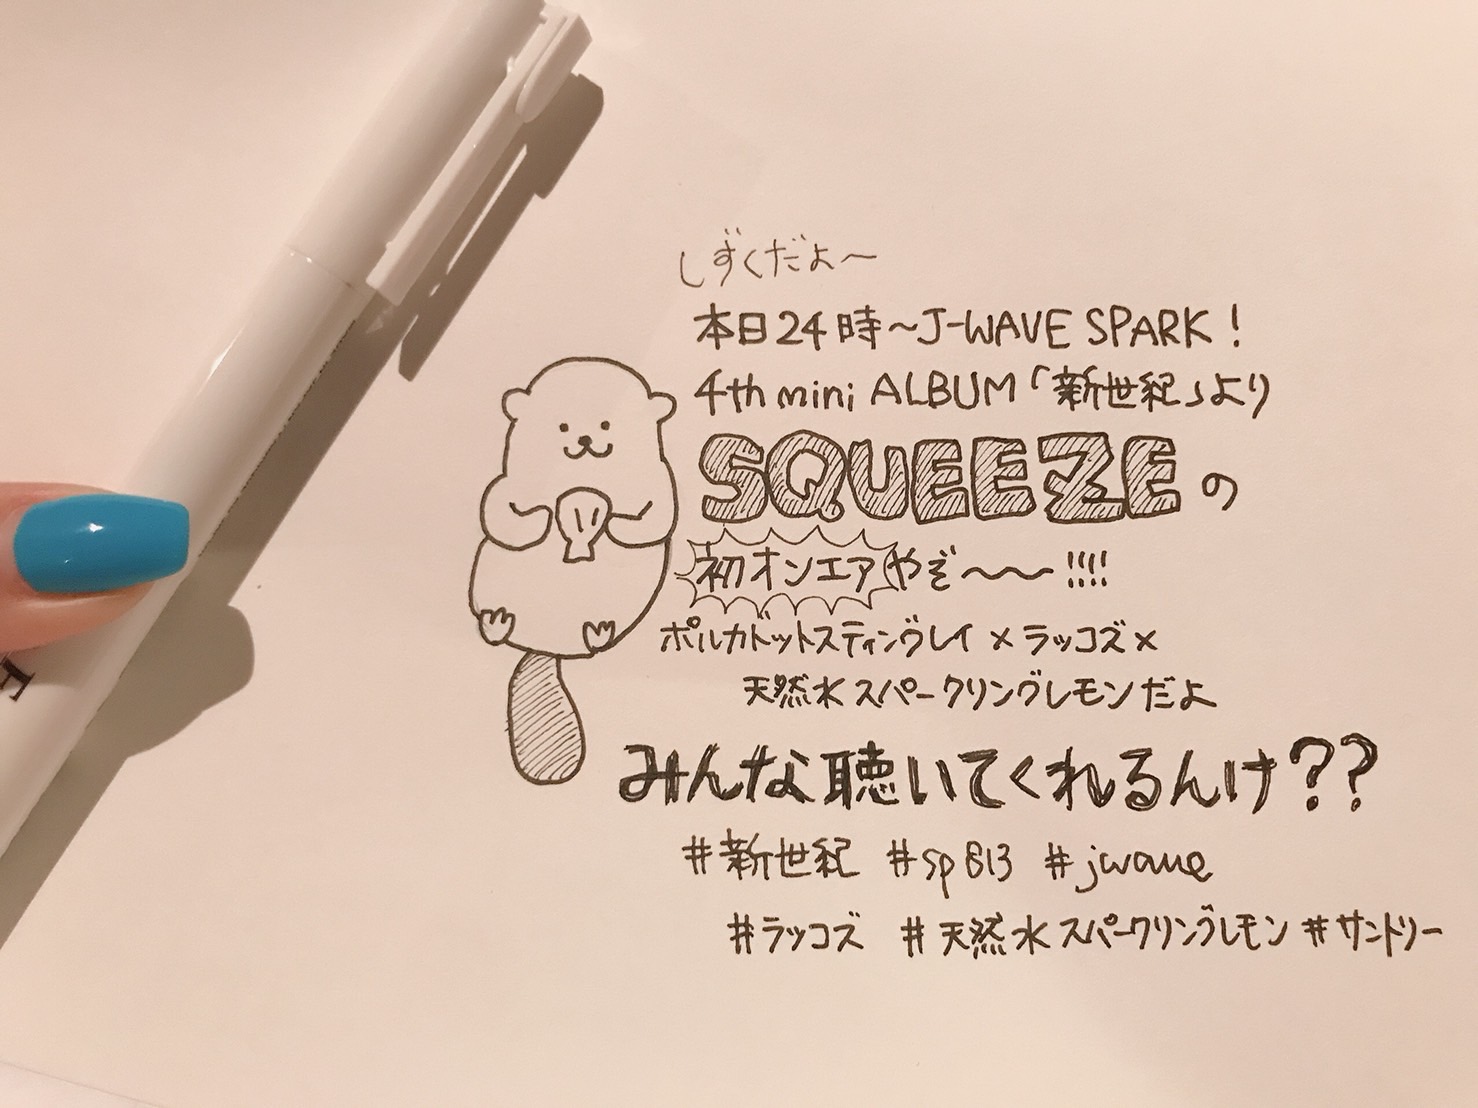 しずくだよ〜
本日24時〜J-WAVE SPARK!
4th mini ALBUM「新世紀」より
SQUEEZEの
初オンエアやぞ〜〜!!!!
ポルカドットスティングレイ×ラッコズ×
天然水スパークリングレモンだよ
みんな聴いてくれるんけ??
#新世紀 #sp813 #jwave
#ラッコズ #天然水スパークリングレモン #サントリー